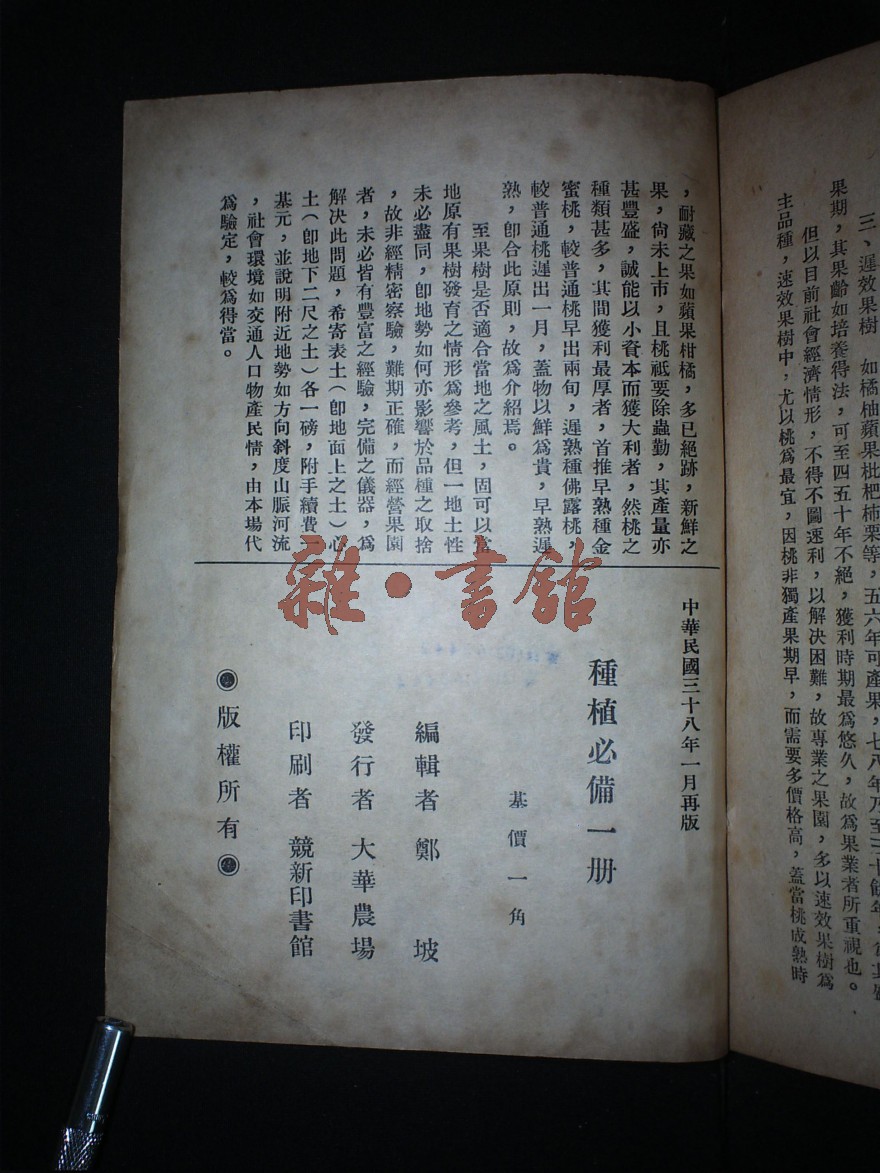 三、遲效果樹　如橘柚蘋果枇杷柿栗等，五六年可產果，七八年乃至三十餘年，爲其盛
果期，其果齡如培養得法，可至四五十年不絕，獲利時期最爲悠久，故爲果業者所重視也。
但以目前社會經濟情形，不得不圖速利，以解決困難，故專業之果園，多以速效果樹爲
主品種，速效果樹中，尤以桃爲最宜，因桃非獨產果期早，而需要多價格高，蓋當桃成熟時
，耐藏之果如蘋果柑橘，多已絕跡，新鮮之
果，尙未上市，且桃祇要除蟲勤，其產量亦
甚豐盛，誠能以小資本而獲大利者，然桃之
種類甚多，其間獲利最厚者，首推早熟種金
蜜桃，較普通桃早出兩旬，遲熟種佛露桃，
較普通桃遲出一月，蓋物以鮮爲貴，早熟遲
熟，卽合此原則，故爲介紹焉。
至果樹是否適合當地之風土，固可以當
地原有果樹發育之情形爲參考，但一地土性
未必盡同，卽地勢如何亦影響於品種之取捨
，故非經精密察驗，難期正確，而經營果園
者，未必皆有豐富之經驗，完備之儀器，爲
解決此問題，希寄表土（卽地面上之土）心
土（卽地下二尺之土）各一磅，附手續費一
基元，並說明附近地勢如方向斜度山脈河流
，社會環境如交通人口物產民情，由本場代
爲驗定，較爲得當。
中華民國三十八年一月再版
種植必備一册
基價一角
編輯者　鄭坡
發行者　大華農場
印刷者　競新印書館
版權所有
雜·書館